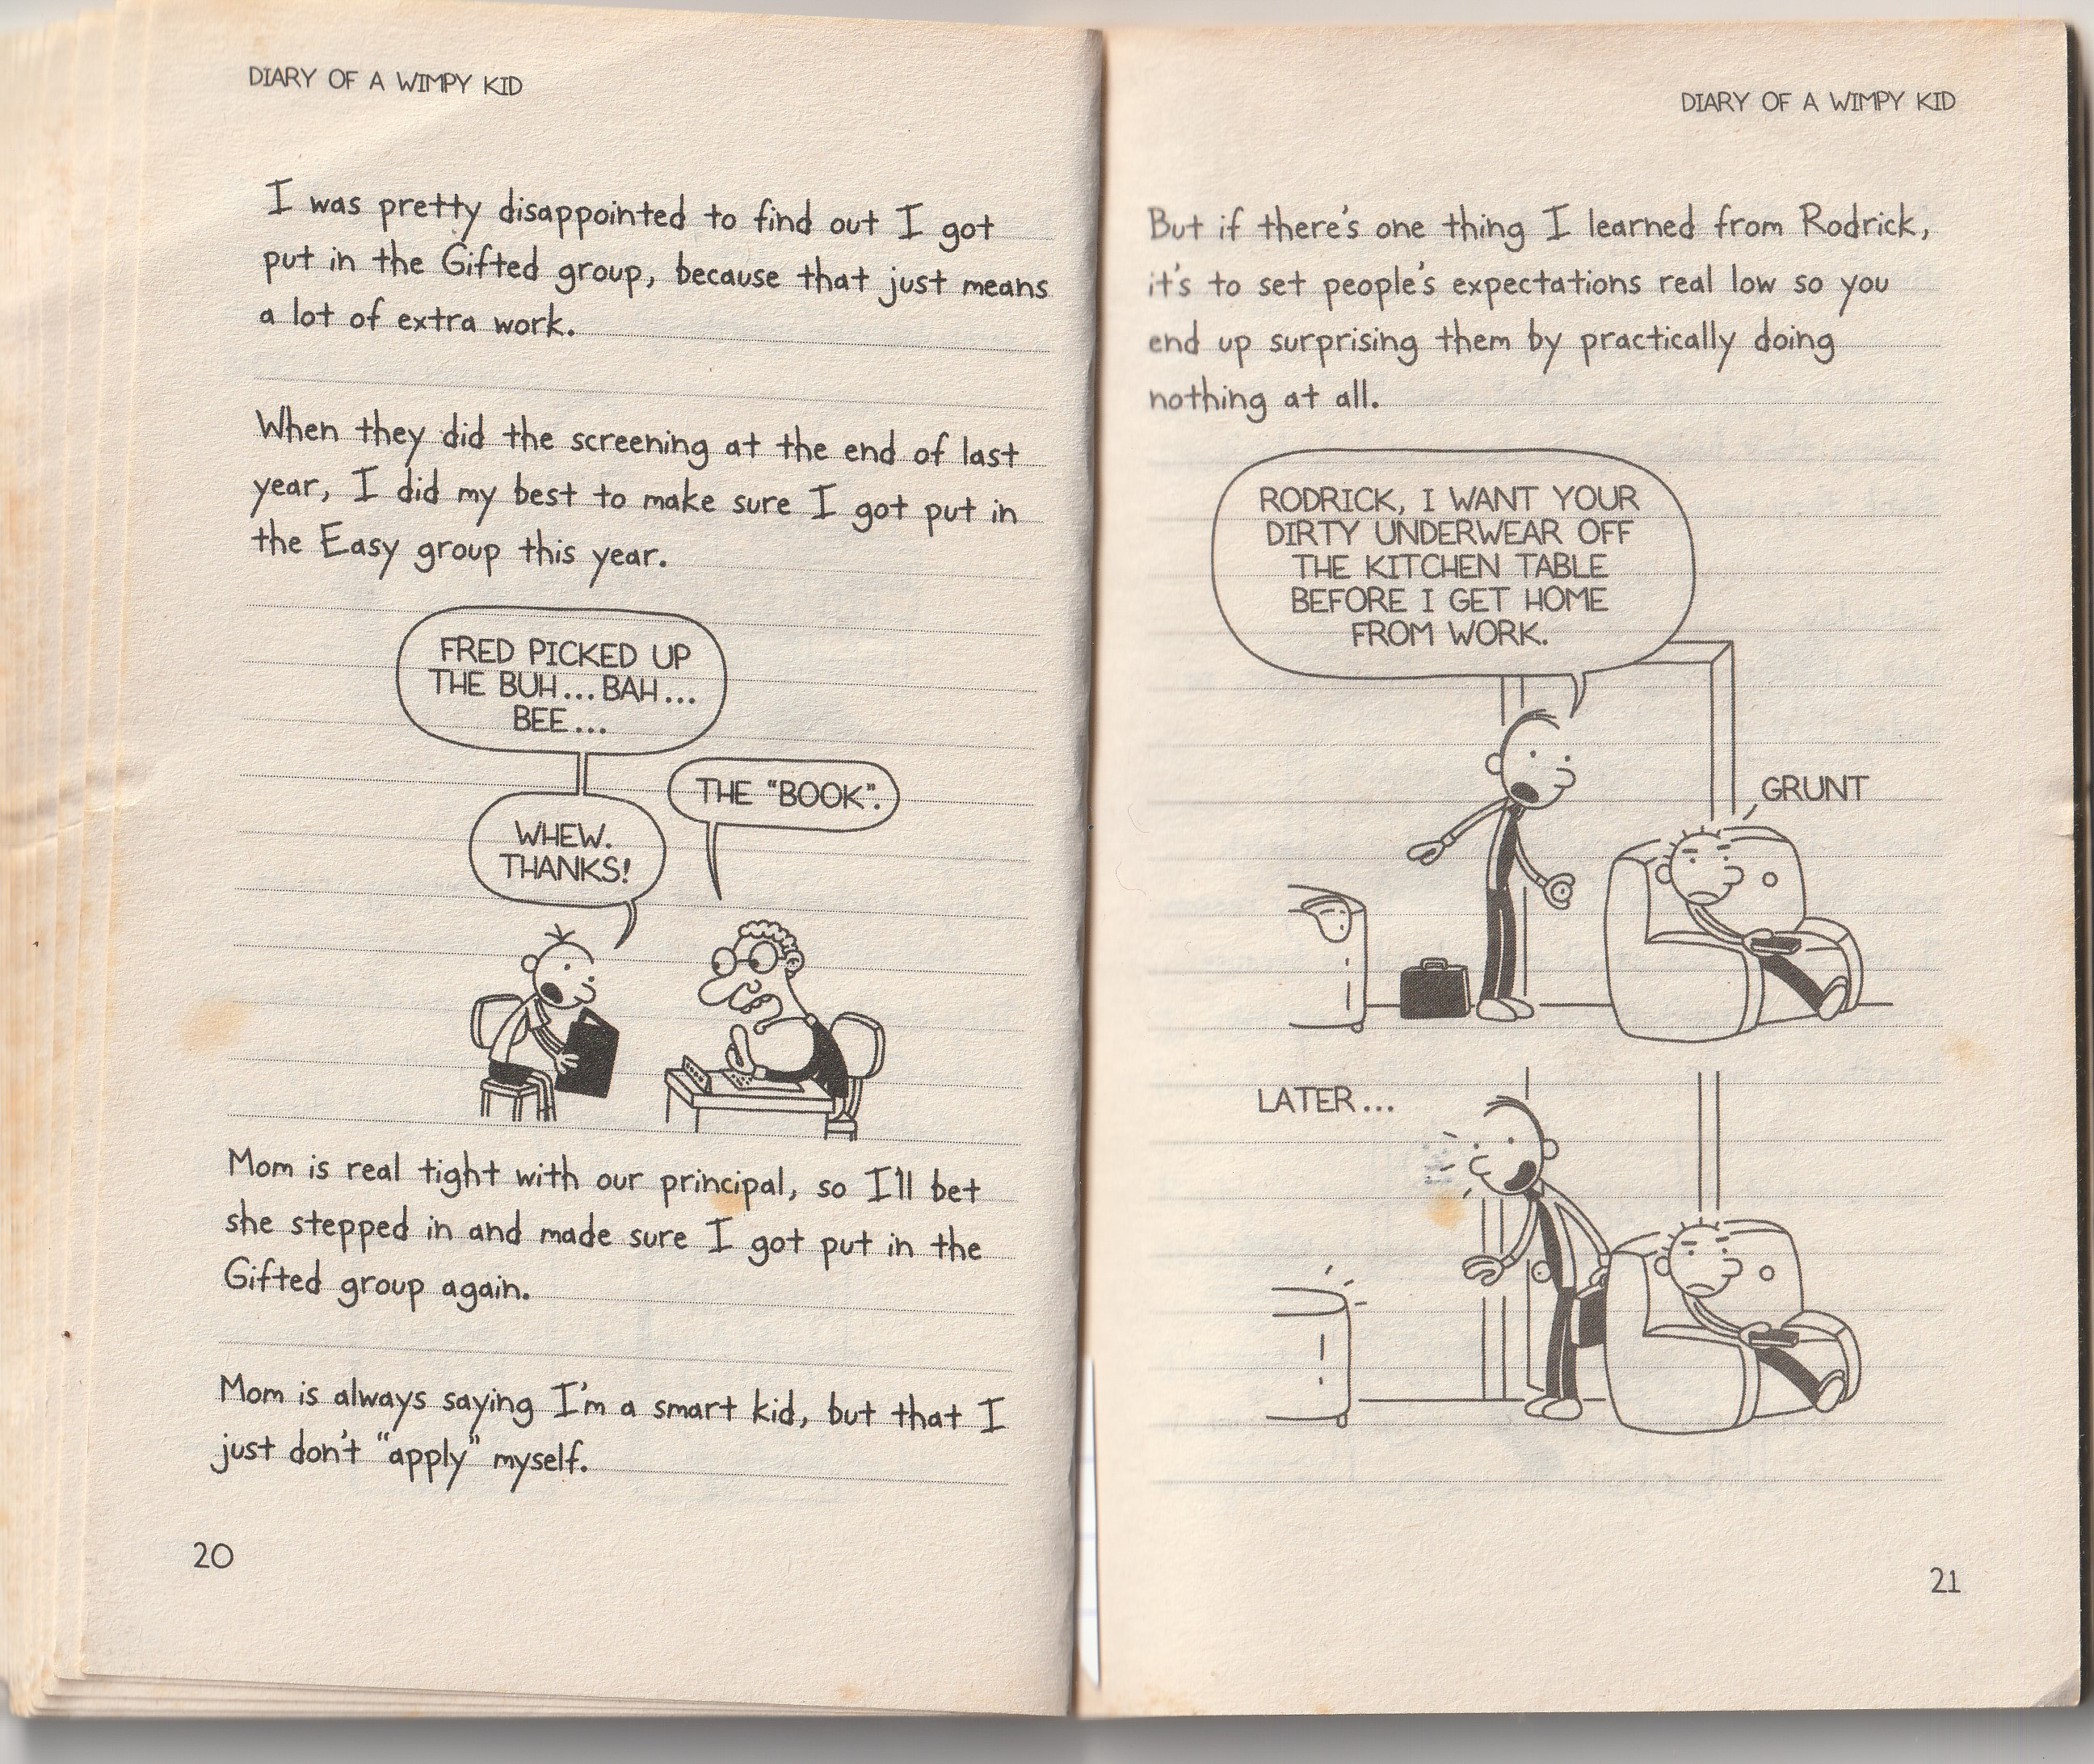 DIARY OF A WIMPY KID
I was pretty disappointed to find out I got
put in the Gifted group, because that just means
a lot of extra work.
When they did the screening at the end of last
year, I did my best to make sure I got put in
the Easy group this year.
FRED PICKED UP
THE BUH...BAH...
BEE...
THE "BOOK".
WHEW.
THANKS!
Mom is real tight with our principal, so I'll bet
she stepped in and made sure I got put in the
Gifted group again.
Mom is always saying I'm a smart kid, but that I
just don't "apply" myself.
20
DIARY OF A WIMPY KID
But if there's one thing I learned from Rodrick,
it's to set people's expectations real low so you
end up surprising them by practically doing
nothing at all.
RODRICK, I WANT YOUR
DIRTY UNDERWEAR OFF
THE KITCHEN TABLE
BEFORE I GET HOME
FROM WORK.
GRUNT
LATER...
21